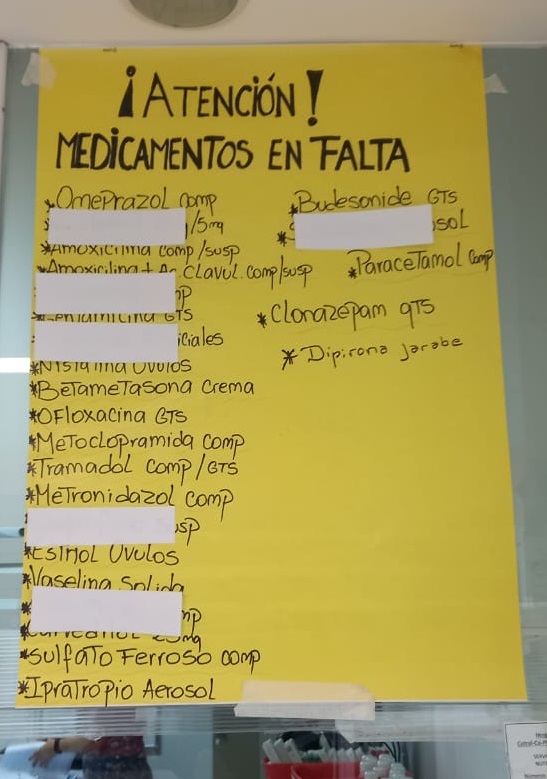 ¡ATENCIÓN!
MEDICAMENTOS EN FALTA
*Omeprazol comp
/5mg
*Amoxicilina comp/susp
*Amoxicilina + Ac. Clavul. comp/susp
*Gentamicina GTS
iciales
*Nistatina Óvulos
*Betametasona crema
*Ofloxacina GTS
*Metoclopramida comp
*Tramadol comp/GTS
*Metronidazol comp
susp
*Estriol Óvulos
*Vaselina Solida
mp
*Carvedilol 25mg
*Sulfato Ferroso comp
*Ipratropio Aerosol
*Budesonide GTS
sol
*Paracetamol comp
*Clonazepam gts
*Dipirona jarabe